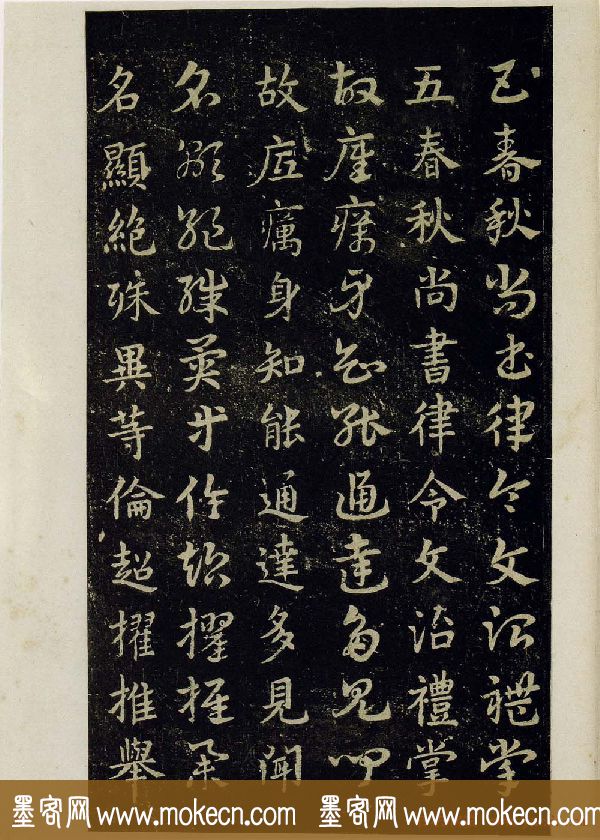 五春秋尚書律令文治禮掌
五春秋尚書律令文治禮掌
故庢癘身知能通達多見聞
故庢癘身知能通達多見聞
名顯絶殊異等倫超擢推舉
名顯絶殊異等倫超擢推舉
墨客网 www.mokecn.com 墨客网 www.mokecn.com